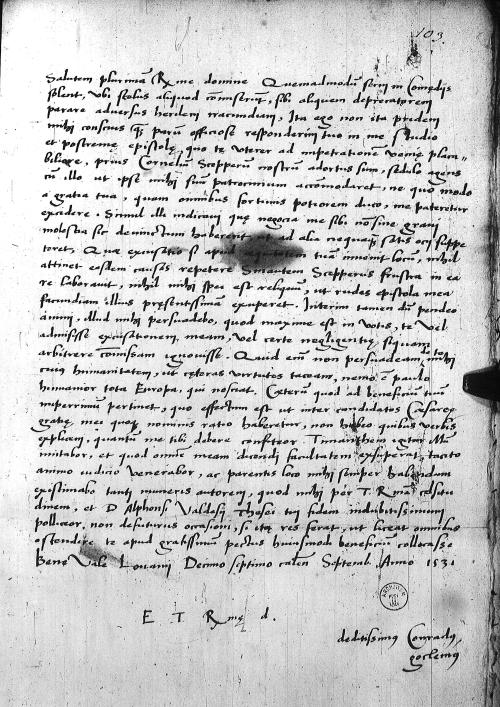 103
Salutem plurimā Rme domine Quemadmodū serui in Comędijs
solent, ubi scelus aliquod cōmiserūt, sibi aliquem deprecatorem
parare aduersus herilem iracundiam, Ita ego non ita pridem
mihi conscius parū officiose respondērim tuo in me studio
et postremę epistolę, quo te uterer ad impetrationem uenię placa-
biliore, prius Cornelium Scepperū nostrū adortus sum, sedulo agens
cū illo ut ipse mihi suū patrocinium accōmodaret, ne quo modo
a gratia tua, quam omnibus fortunis potiorem duco, me pateretur
excidere. Simul illi indicaui quę negocia me sibi nō sine graui
molestia sic deuinctum haberent, ut ad alia nequaq̄ satis ocij suppe
teret, Quę excusatio si apud ęquitatem tuā inuenit locū, nihil
attinet easdem causas repetere Sin autem Scepperus frustra in ea
re laborauit, nihil mihi spei est reliquū, ut rudis epistola mea
facundiam illius pręsentissimam exuperet. Interim tamen dū pendeo
animi, illud mihi persuadebo, quod maxime est in uotis, te uel
admisisse excusationem meam, uel certe negligentię siquam
arbitrere cōmissam ignouisse. Quid em̄ non persuadeam de te mihi
cuius humanitatem, ut cęteras uirtutes taceam, nemo ē paulo
humanior tota Europa, qui nesciat. Cęterum quod ad beneficiū tuū
nuperrimū pertinet, quo effectum est ut inter candidatos Cęsareę
gratię mei quoq nominis ratio haberetur, non habeo quibus uerbis
explicem, quantū me tibi debere confitear Timanthem igitur
imitabor, et quod omnē meam dicendi facultatem exuperat, tacito
animo iudicio uenerabor, ac parentis loco mihi semper habendum
existimabo tanti muneris autorem, quod mihi per T. Rmā
dinem, et D Alphonsi Valdesij Thesei tui fidem indubitissimum
polliceor, non defuturus occasioni, si ita res ferat, ut liceat omnibus
ostendere te apud gratissimum pectus huiusmodi beneficiū collocasse
Bene Vale Louanij Decimo septimo calen Septemb. Anno 1531
E T Rmę d.
deditissimus Conradus
goclenius